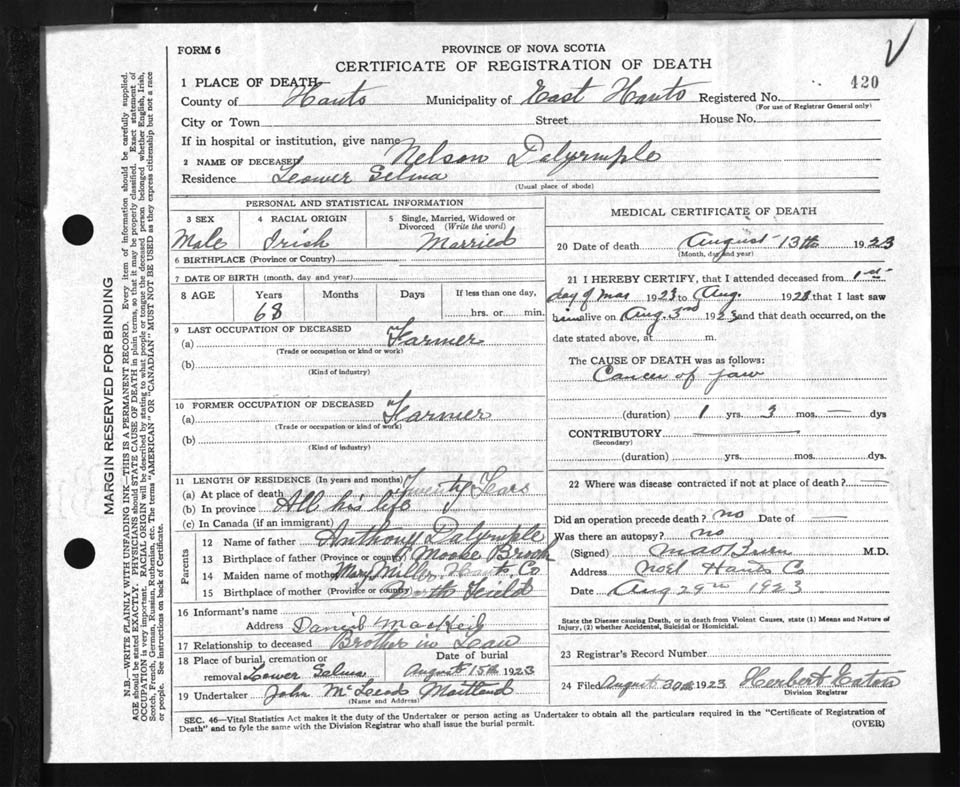 FORM 6
PROVINCE OF NOVA SCOTIA
CERTIFICATE OF REGISTRATION OF DEATH
420
1 PLACE OF DEATH—
County of Hants Municipality of East Hants Registered No.
(For use of Registrar General only)
City or Town Street House No.
If in hospital or institution, give name
2 NAME OF DECEASED Nelson Dalyrmple
Residence Loower Selma
(Usual place of abode)
PERSONAL AND STATISTICAL INFORMATION
3 SEX 4 RACIAL ORIGIN 5 Single, Married, Widowed or Divorced (Write the word)
Male Irish Married
6 BIRTHPLACE (Province or Country)
7 DATE OF BIRTH (month, day and year)
8 AGE Years Months Days If less than one day,
68 hrs. or min.
9 LAST OCCUPATION OF DECEASED
(a) Farmer
(Trade or occupation or kind or work)
(b)
(Kind of industry)
10 FORMER OCCUPATION OF DECEASED
(a) Farmer
(Trade or occupation or kind of work)
(b)
(Kind of industry)
11 LENGTH OF RESIDENCE (In years and months)
(a) At place of death Twenty Years
(b) In province All his life
(c) In Canada (if an immigrant)
Parents
12 Name of father Anthony Dalyrmple
13 Birthplace of father (Province or country) Moose Brook
14 Maiden name of mother Mary Miller Hants Co
15 Birthplace of mother (Province or country)
16 Informant's name
Address Daniel MacKeil
17 Relationship to deceased Brother in Leaw
18 Place of burial, cremation or removal Lower Selma Date of burial August 15th 1923
19 Undertaker John McLeod Maitland
(Name and Address)
MEDICAL CERTIFICATE OF DEATH
20 Date of death August 13th 1923
(Month, day and year)
21 I HEREBY CERTIFY, that I attended deceased from 1st
day of Mar 1923 to Aug. 1923 that I last saw
him alive on Aug. 3rd 1923 and that death occurred, on the
date stated above, at m.
The CAUSE OF DEATH was as follows:
Cancer of jaw
(duration) 1 yrs. 3 mos. — dys
CONTRIBUTORY —
(Secondary)
(duration) yrs. mos. dys.
22 Where was disease contracted if not at place of death? —
Did an operation precede death? no Date of —
Was there an autopsy? no
(Signed) M.D.
Address Noel Hants Co
Date Aug 29th 1923
State the Disease causing Death, or in death from Violent Causes, state (1) Means and Nature of
Injury, (2) whether Accidental, Suicidal or Homicidal.
23 Registrar's Record Number
24 Filed August 30th 1923 Herbert Eaton
Division Registrar
SEC. 46—Vital Statistics Act makes it the duty of the Undertaker or person acting as Undertaker to obtain all the particulars required in the "Certificate of Registration of
Death" and to fyle the same with the Division Registrar who shall issue the burial permit.
(OVER)
MARGIN RESERVED FOR BINDING
N.B.—WRITE PLAINLY WITH UNFADING INK—THIS IS A PERMANENT RECORD. Every item of information should be carefully supplied.
AGE should be stated EXACTLY. PHYSICIANS should STATE CAUSE OF DEATH in plain terms, so that it may be properly classified. Exact statement of
OCCUPATION is very important. RACIAL ORIGIN will be described by stating to what people or tongue the deceased person belonged whether English, Irish,
Scotch, French, German, Russian, Ruthenian, etc. The terms "AMERICAN" OR "CANADIAN" MUST NOT BE USED as they express citizenship but not a race
or people. See instructions on back of Certificate.